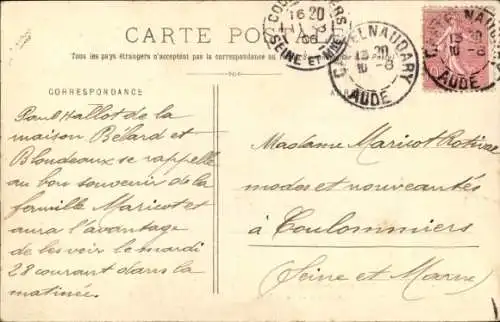 CARTE POSTALE
Tous les pays étrangers n'acceptent pas la correspondance au
CORRESPONDANCE
Paul Hallot de la
maison Bélard et
Blondeaux se rappelle
au bon souvenir de la
famille Maricot et
aura l'avantage
de les voir le mardi
28 courant dans la
matinée.
COULOMMIERS
16 20
8
06
SEINE ET MNE
CASTELNAUDARY
13 20
10 -8
AUDE
CASTELNAUDARY
13 20
10 -8
AUDE
Madame Maricot Rotival
modes et nouveautés
à Coulommiers
(Seine et Marne)